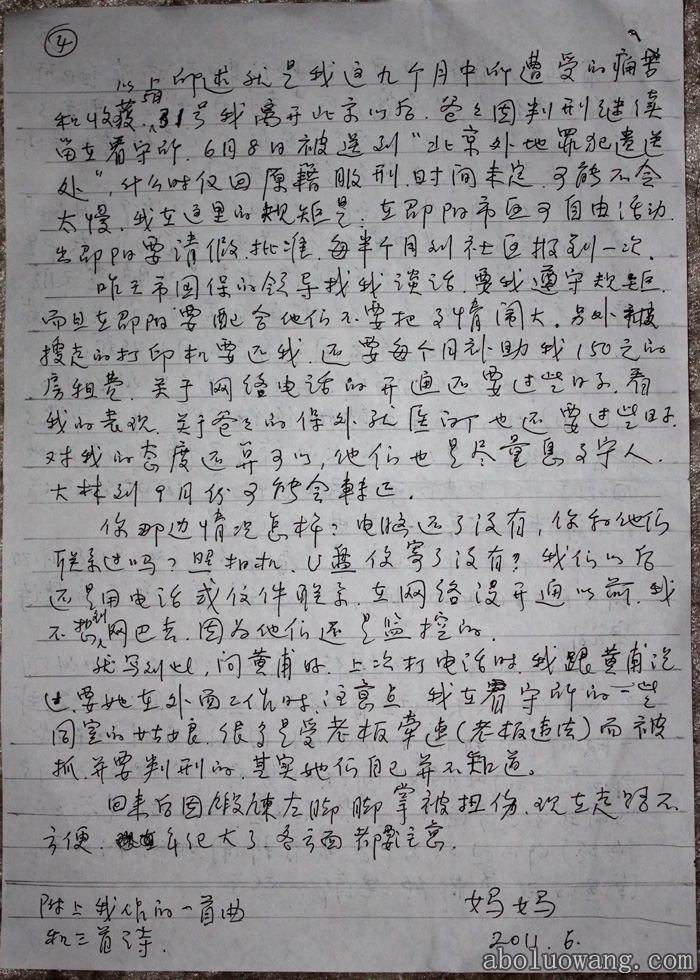 ④
以上所述就是我这九个月中所遭受的痛苦
和收获. 31号我离开北京以后. 爸爸因判刑继续
留在看守所. 6月8日被送到“北京外地罪犯遣送
处”, 什么时候回原籍服刑. 时间未定. 可能不会
太慢. 我在这里的规矩是: 在邵阳市区可自由活动
出邵阳要请假. 批准. 每半个月到社区报到一次.
昨天市国保的领导找我谈话. 要我遵守规矩.
而且在邵阳要配合他们不要把事情闹大. 另外被
搜走的打印机要还我. 还要每个月补助我150元的
房租费. 关于网络电话的开通还要过些日子. 看
我的表现. 关于爸爸的保外就医的也还要过些日子.
对我的态度还算可以, 他们也是尽量息事宁人.
大林到9月份可能会转正.
你那边情况怎样? 电脑还了没有, 你和他们
联系过吗? 照相机. U盘你寄了没有? 我们以后
还是用电话或信件联系. 在网络没开通以前. 我
不想到网巴去. 因为他们还是监控的.
就写到此, 问黄甫好. 上次打电话时. 我跟黄甫说
过. 要她在外面工作时. 注意点. 我在看守所的一些
同室的姑娘. 很多是受老板牵连(老板违法)而被
抓. 并要判刑的. 其实她们自己并不知道。
回来后因锻炼左脚脚掌被扭伤. 现在走路不
方便. 年纪大了. 各方面都要注意.
附上我作的一首曲
和三首诗.
妈妈
2011. 6.
aboluowang.com